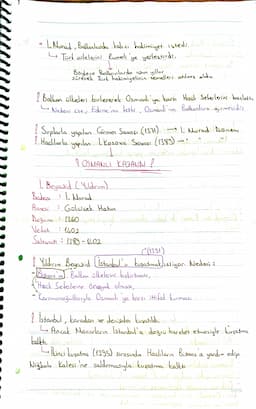 - I. Murad, Balkanlarda kalıcı hakimiyet istedi.
↳ Türk ailelerini Rumeli'ye yerleştirdi.
Böylece Balkanlarda uzun yıllar
sürecek Türk hakimiyetinin temelleri atılmış oldu
! Balkan ülkeleri birleşerek Osmanlı'ya karşı Haçlı Seferlerini başlattı.
↳ Nedeni ise, Edirne'nin fethi, Osmanlı'nın Balkanlara girmesidir.
! Sırplarla yapılan Çirmen Savaşı (1371) → I. Murad Dönemi
! Haçlılarla yapılan I. Kosova Savaşı (1389) → " "
! OSMANLI KAZANIR !
I. Beyazid (Yıldırım)
Babası : I. Murad
Annesi : Gülçiçek Hatun
Doğum : 1360
Vefat : 1402
Saltanatı : 1389-1402
(1391)
! Yıldırım Beyazid İstanbul'u kuşatmak istiyor. Nedeni:
- Bizans'ın Balkan ülkelerini kışkırtması,
- Haçlı Seferlerine önayak olması,
- Karamanoğullarıyla Osmanlı'ya karşı ittifak kurması.
! İstanbul, karadan ve denizden kuşatıldı.
↳ Ancak Macarların İstanbul'a doğru hareket etmesiyle kuşatma
kalktı.
↳ İkinci kuşatma (1395) sırasında Haçlıların Bizans'a yardım edip
Niğbolu Kalesi'ne saldırmasıyla kuşatma kalktı.